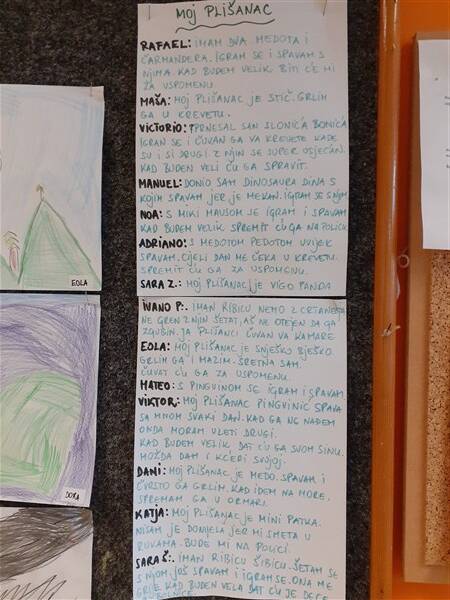 MOJ PLIŠANAC
RAFAEL: IMAM DVA MEDOTA I
ČARMANDERA. IGRAM SE I SPAVAM S
NJIMA. KAD BUDEM VELIK BIT ĆE MI
ZA USPOMENU.
MAŠA: MOJ PLIŠANAC JE STIČ. GRLIM
GA U KREVETU.
VICTORIO: PRNESAL SAN SLONIĆA BONIĆA
IGRAN SE I ČUVAN GA VA KREVETE KADE
SU I SI DRUGI. Z NJIN SE SUPER OSJEĆAN.
KAD BUDEN VELI ĆU GA SPRAVIT.
MANUEL: DONIO SAM DINOSAURA DINA S
KOJIM SPAVAM JER JE MEKAN. IGRAM SE S NJIM
NOA: S MIKI MAUSOM SE IGRAM I SPAVAM
KAD BUDEM VELIK SPREMIT ĆU GA NA POLICU
ADRIANO: S MEDOTOM PEDOTOM UVIJEK
SPAVAM. CIJELI DAN ME ČEKA U KREVETU.
SPREMIT ĆU GA ZA USPOMENU.
SARA Z.: MOJ PLIŠANAC JE VIGO PANDA
IVANO P.: IMAN RIBICU NEMO Z CRTANEGA
NE GREN Z NJIN ŠETAT, AŠ NE OTEJEN DA GA
ZGUBIN. JA PLIŠANCI ČUVAN VA KAMARE
EOLA: MOJ PLIŠANAC JE SNJEŠKO BJEŠKO.
GRLIM GA I MAZIM. SRETNA SAM.
ČUVAT ĆU GA ZA USPOMENU.
MATEO: S PINGVINOM SE IGRAM I SPAVAM
VIKTOR: MOJ PLIŠANAC PINGVINIĆ SPAVA
SA MNOM SVAKI DAN. KAD GA NE NAĐEM
ONDA MORAM UZETI DRUGI.
KAD BUDEM VELIK DAT ĆU GA SVOM SINU.
MOŽDA DAM I KĆERI SVOJOJ.
DANI: MOJ PLIŠANAC JE MEDO. SPAVAM I
ČVRSTO GA GRLIM. KAD IDEM NA MORE,
SPREMAM GA U ORMARU.
KATJA: MOJ PLIŠANAC JE MINI PATKA.
NISAM JE DONIJELA JER MI SMETA U
RUKAMA. BUDE MI NA POLICI.
SARA Š.: IMAN RIBICU ŠIBICU. ŠETAM SE
S NJOM, JOŠ SPAVAM I IGRAM SE. ONA ME
GRIJE. KAD BUDEN VELA DAT ĆU JE DECE
EOLA
DORA